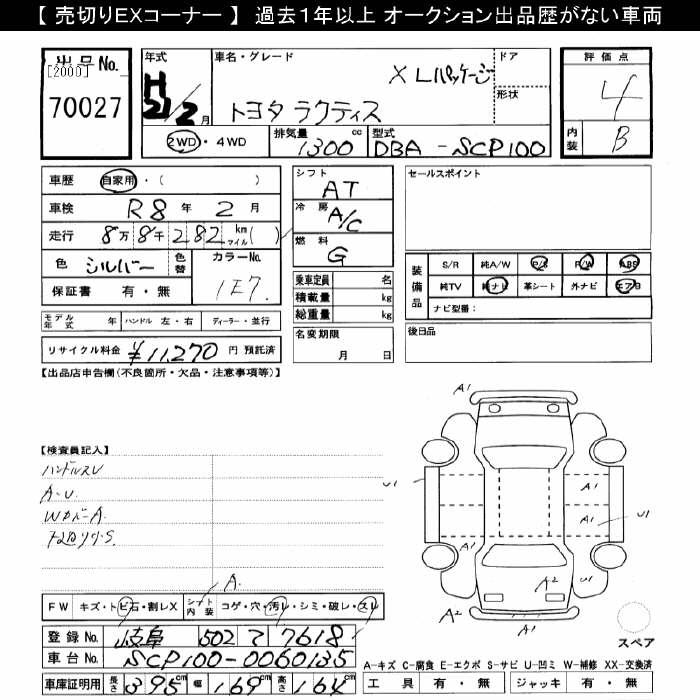 【 売切りEXコーナー 】 過去1年以上 オークション出品歴がない車両
出品 No.
[2000]
70027
年式
H 21/2 月
車名・グレード
X Lパッケージ
トヨタ ラクティス
ドア
形状
2WD・4WD
排気量
1300 cc
型式
DBA-SCP100
評価点
4
内装
B
車歴 自家用・( )
車検 R8 年 2 月
走行 8万 8千 282 km マイル( )
色 シルバー 色替
カラーNo.
1E7
保証書 有・無
モデル年式 年 ハンドル 左・右 ディーラー・並行
リサイクル料金 ¥11,270 円 預託済
シフト
AT
冷房
A/C
燃料
G
乗車定員 名
積載量 kg
総重量 kg
名変期限
月 日
セールスポイント
装備品
S/R 純A/W P/S P/W ABS
純TV 純ナビ 革シート 外ナビ エアB
ナビ型番:
後日品
【出品店申告欄(不良箇所・欠品・注意事項等)】
【検査員記入】
ハンドルスレ
A・U
WカバーA
A1
A1
U1
A1
A1
U1
A1
A2
A2
A.
FW キズ・トビ石・割レX シート内装 コゲ・穴・汚レ・シミ・破レ・スレ
登録 No. 岐阜 502 て 7618
車台 No. SCP100-0060135
車庫証明用 長さ 395 幅 169 高さ 164
スペア
A-キズ C-腐食 E-エクボ S-サビ U-凹ミ W-補修 XX-交換済
工具 有・無 ジャッキ 有・無